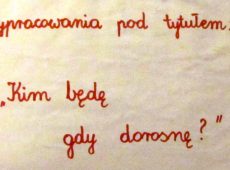 ypracowania pod tytułem.
„Kim będę
gdy dorosnę?"